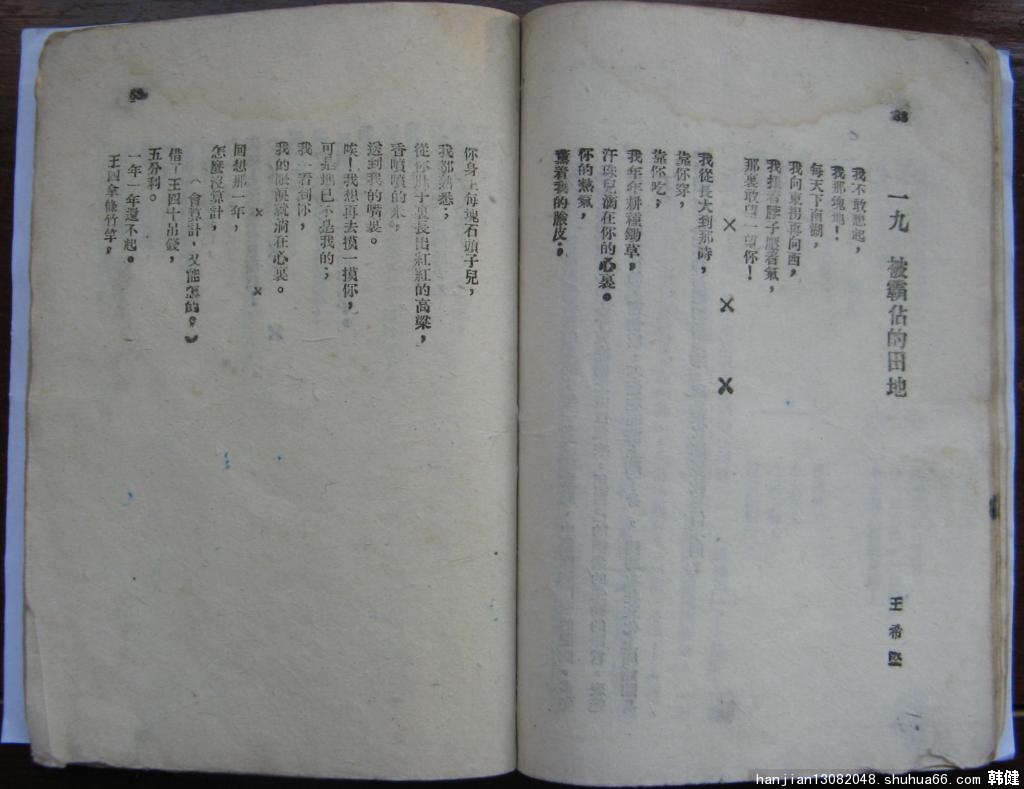 88
一九　被霸佔的田地
王希堅
我不敢想起，
我那塊地！
每天下南湖，
我向東拐再向西，
我扭着脖子憋着氣，
那裏敢望一望你！
× × ×
我從長大到那時，
靠你穿，
靠你吃；
我年年耕種鋤草，
汗珠兒滴在你的心裏。
你的熱氣，
薰着我的臉皮；
你身上每塊石頭子兒，
我都熟悉；
從你肚子裏長出紅紅的高粱，
香噴噴的米，
送到我的嘴裏。
唉！我想再去摸一摸你，
可是地已不是我的；
我一看到你，
我的眼淚就淌在心裏。
× × ×
回想那一年，
怎麼沒算計，
（會算計，又能怎的。）
借了王四十吊錢，
五分利。
一年一年還不起。
王四拿條竹竿，
hanjian13082048.shuhua66.com 韩健